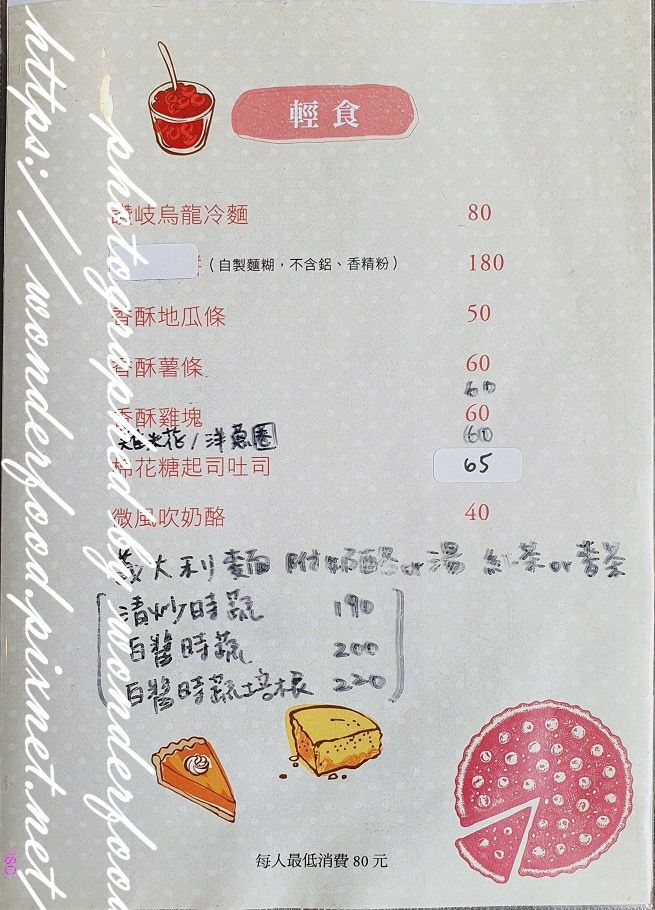 輕食
讚岐烏龍冷麵 80
(自製麵糊，不含鋁、香精粉) 180
香酥地瓜條 50
香酥薯條 60
60
香酥雞塊 60
雞米花/洋蔥圈 60
棉花糖起司吐司 65
微風吹奶酪 40
義大利麵 附奶酪or湯 紅茶or麥茶
清炒時蔬 190
白醬時蔬 200
白醬時蔬培根 220
每人最低消費 80 元
photographed by wonderfood
https://wonderfood.pixnet.net/